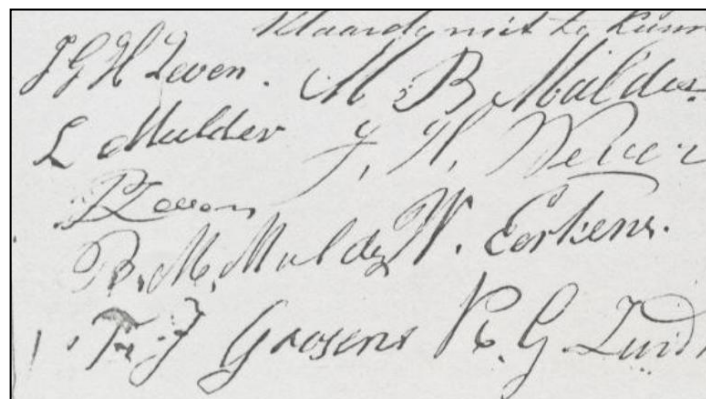 klaarde niet te kunn
J G H Zeven. M B Mulder
L Mulder J. H.
P Zeven
B. M. Mulder W. Eerkens.
F. J Grosens R. G. Zuid